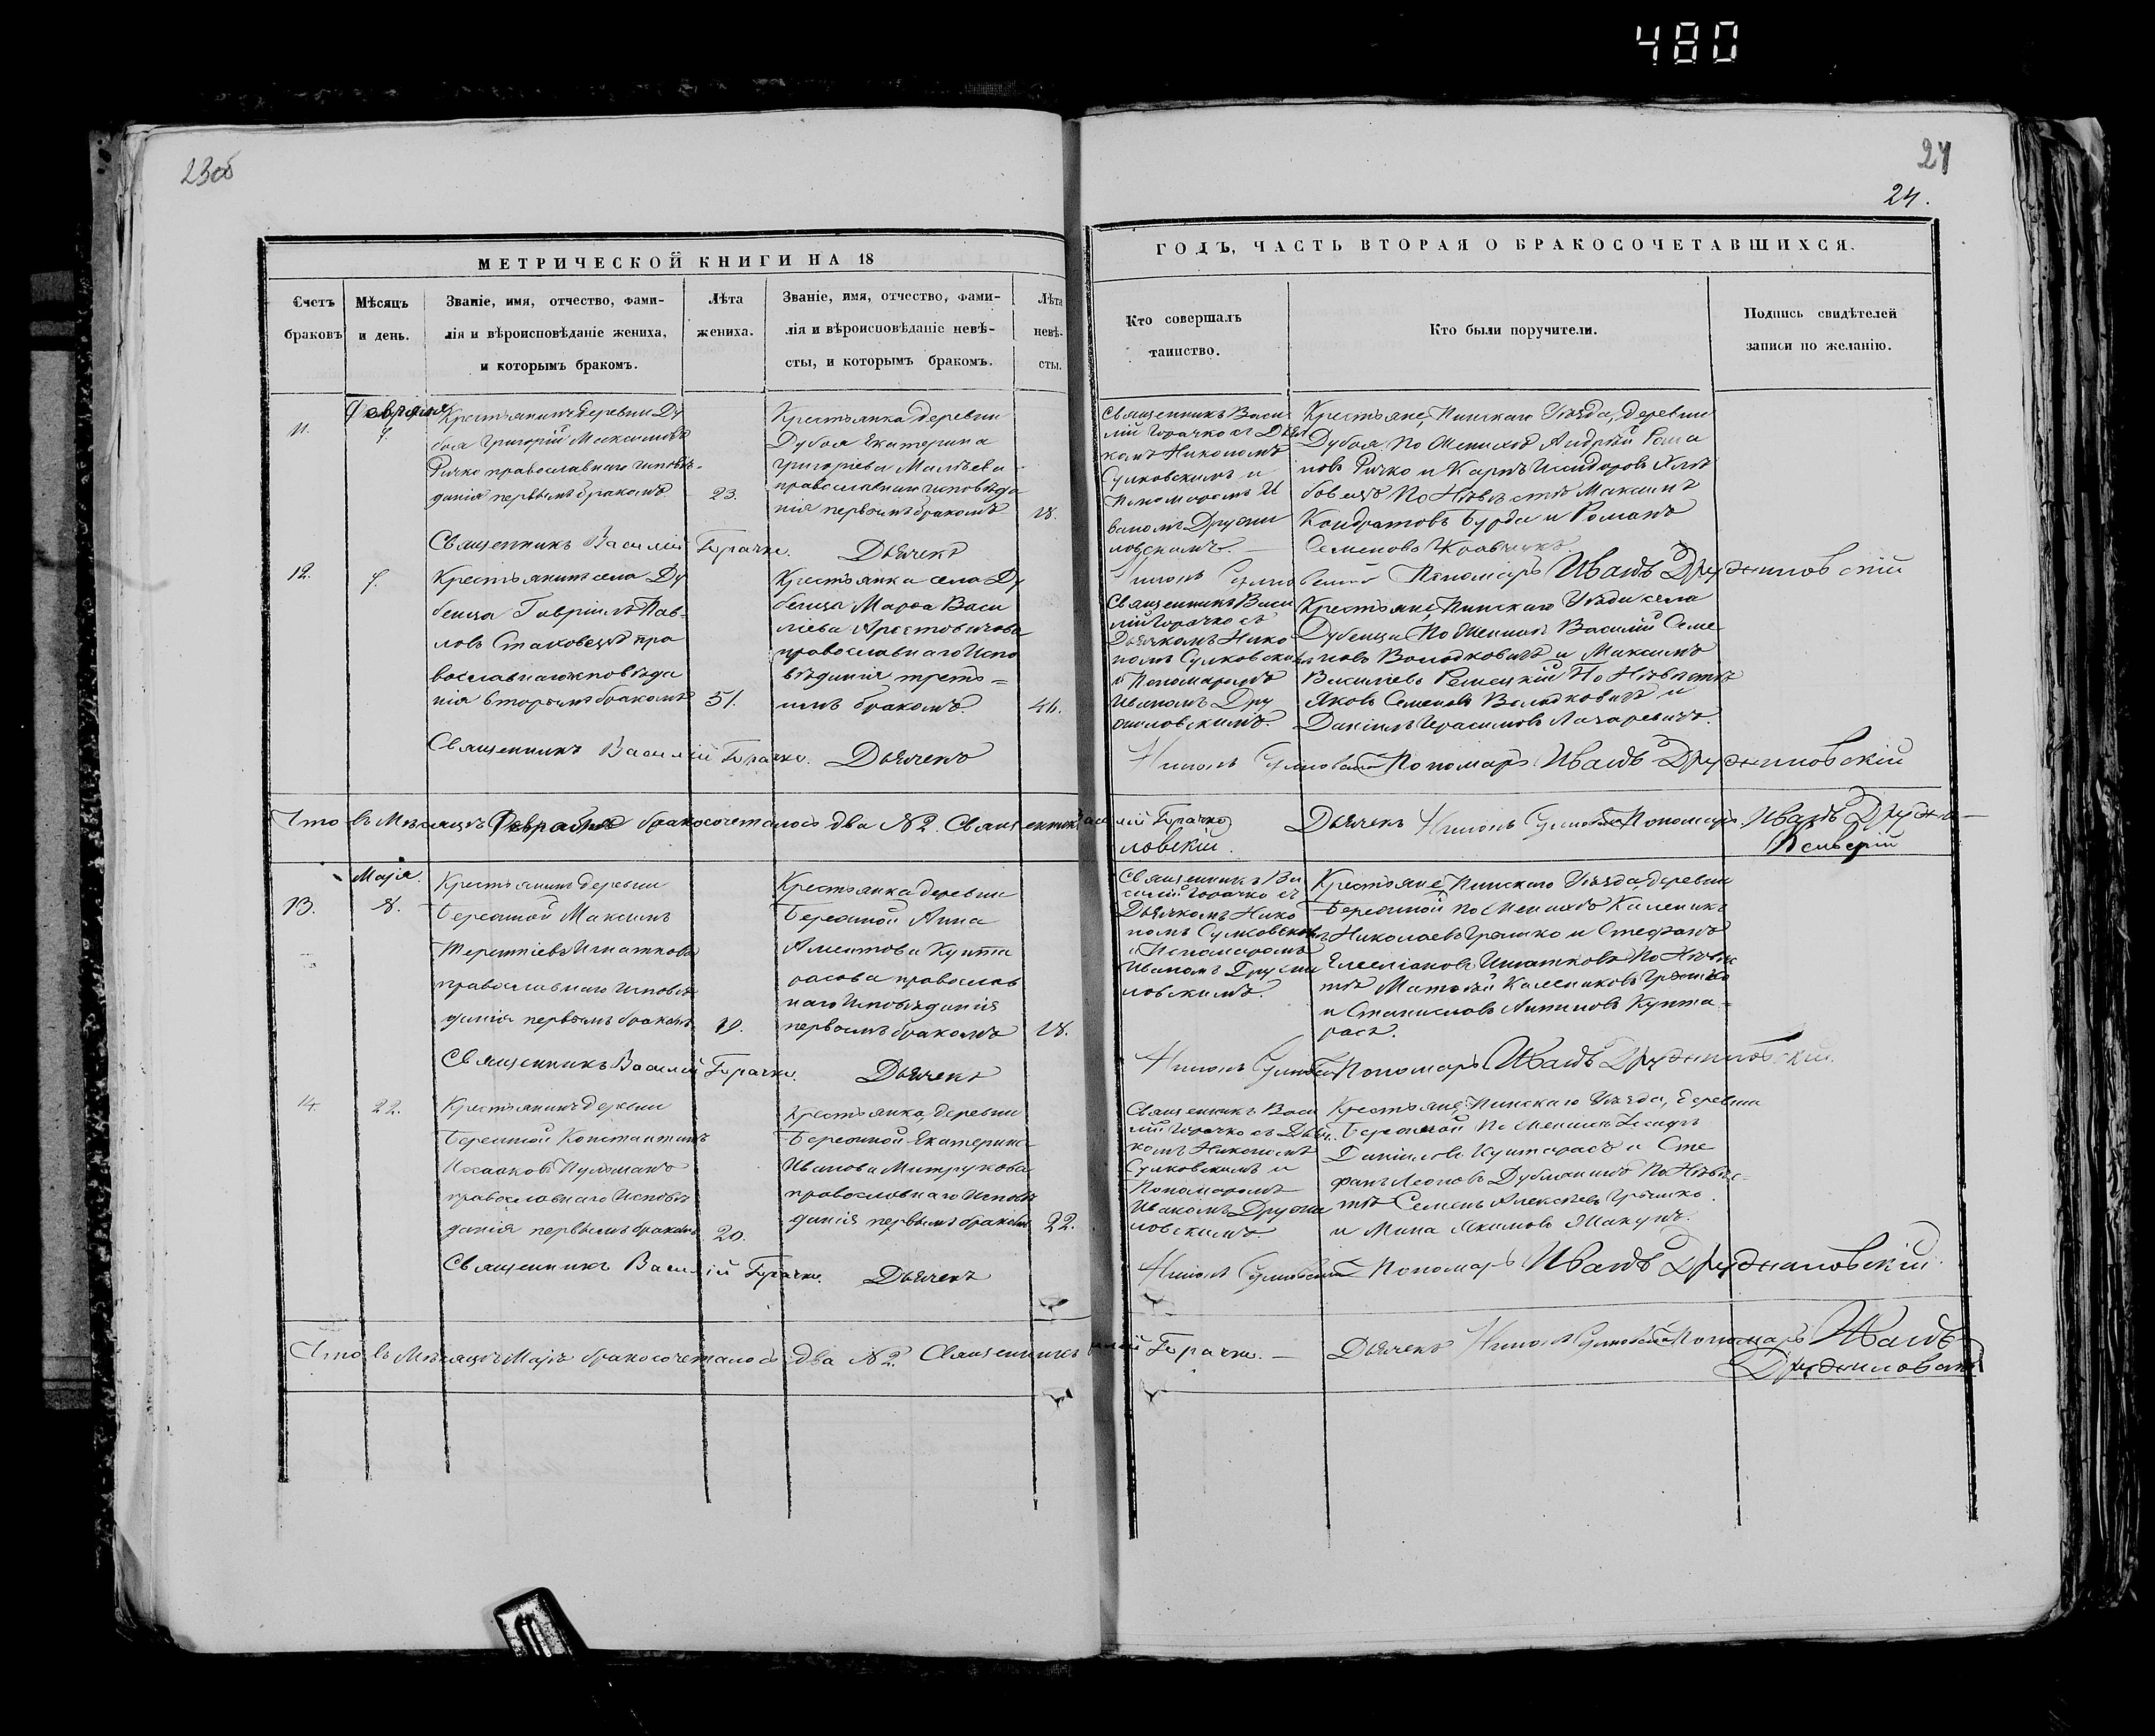 480
23об
24
24.
МЕТРИЧЕСКОЙ КНИГИ НА 18
ГОДЪ, ЧАСТЬ ВТОРАЯ О БРАКОСОЧЕТАВШИХСЯ.
Счетъ
браковъ
Мѣсяцъ
и день.
Званіе, имя, отчество, фами-
лія и вѣроисповѣданіе жениха,
и которымъ бракомъ.
Лѣта
жениха.
Званіе, имя, отчество, фами-
лія и вѣроисповѣданіе невѣ-
сты, и которымъ бракомъ.
Лѣта
невѣ-
сты.
Кто совершалъ
таинство.
Кто были поручители.
Подпись свидѣтелей
записи по желанію.
11.
Февраля
Крестьянинъ деревни Ду
боя Григорій Максимовъ
Ричко православнаго исповѣ-
данія первымъ бракомъ
23.
Крестьянка деревни
Дубоя Екатерина
Григоріева
православнаго исповѣда
нія первымъ бракомъ
18.
Священникъ Васи
лій Горачко съ Дьяч
комъ Никономъ
Сулковскимъ и
Пономаромъ И
ваномъ Дружи
ловскимъ.
Крестьяне Пинскаго Уѣзда, деревни
Дубоя По Женихѣ Андрей Рома
новъ Ричко и Карпъ Исидоровъ
По Невѣстѣ Максимъ
Кондратовъ Бурда и Романъ
Семеновъ
Священникъ Василій Горачко. Дьячекъ
Никонъ Сулковскій Пономаръ Иванъ Дружиловскій
12.
Крестьянинъ села Ду
бенца Гавріилъ Пав-
ловъ Стаковецъ пра
вославнаго исповѣда
нія вторымъ бракомъ
51.
Крестьянка села Ду
бенца Марѳа Васи
ліева Арестовичова
православнаго Испо
вѣданія треть=
имъ бракомъ.
46.
Священникъ Васи
лій Горачко съ
Дьячкомъ Нико
номъ Сулковскимъ
и Пономаромъ
Иваномъ Дру
жиловскимъ.
Крестьяне, Пинскаго Уѣзда села
Дубенца По Женихѣ Василій Семе
новъ Володковичъ и Максимъ
Василіевъ Ремецкій По Невѣстѣ
Яковъ Семеновъ Володковичъ и
Даніилъ Герасимовъ Лазаревичъ.
Священникъ Василій Горачко. Дьячекъ
Никонъ Сулковскій Пономаръ Иванъ Дружиловскій
Что въ Мѣсяцѣ Февралѣ бракосочеталось два №2. Священникъ Василій Горачко Дьячекъ Никонъ Сулковскій Пономаръ Иванъ Дружи-
ловскій.
13.
Маія.
8.
Крестьянинъ деревни
Бережной Максимъ
Терентіевъ Игнатковъ
православнаго Исповѣ
данія первымъ бракомъ
19.
Крестьянка деревни
Бережной Анна
Кунта
расова православ
наго Исповѣданія
первымъ бракомъ
18.
Священникъ Ва
силій Горачко съ
Дьячкомъ Нико
номъ Сулковскимъ
и Пономаромъ
Иваномъ Дружи
ловскимъ.
Крестьяне, Пинскаго Уѣзда, деревни
Бережной По Женихѣ Каленикъ
Николаевъ Гришко и Стефанъ
Емеліановъ Игнатковъ По Невѣс
тѣ Матѳей Калениковъ Гришко
и Станиславъ Антиповъ Кунта-
расъ.
Священникъ Василій Горачко. Дьячекъ
Никонъ Сулковскій Пономаръ Иванъ Дружиловскій.
14.
22.
Крестьянинъ деревни
Бережной Константинъ
Исааковъ
православнаго Исповѣ
данія первымъ бракомъ
20.
Крестьянка, деревни
Бережной Екатерина
Иванова Митрукова
православнаго Исповѣ
данія первымъ бракомъ
22.
Священникъ Васи
лій Горачко съ Дьяч
комъ Никономъ
Сулковскимъ и
Пономаромъ
Иваномъ Дружи
ловскимъ
Крестьяне, Пинскаго Уѣзда, деревни
Бережной По Женихѣ
Даніиловъ Кунтарасъ и Сте
фанъ Леоновъ По Невѣс-
тѣ Семенъ Алексѣевъ Гришко.
и Мина Якимовъ
Священникъ Василій Горачко. Дьячекъ
Никонъ Сулковскій Пономаръ Иванъ Дружиловскій.
Что въ Мѣсяцѣ Маіѣ бракосочеталось два №2. Священникъ Василій Горачко. Дьячекъ Никонъ Сулковскій Пономаръ Иванъ
Дружиловскій